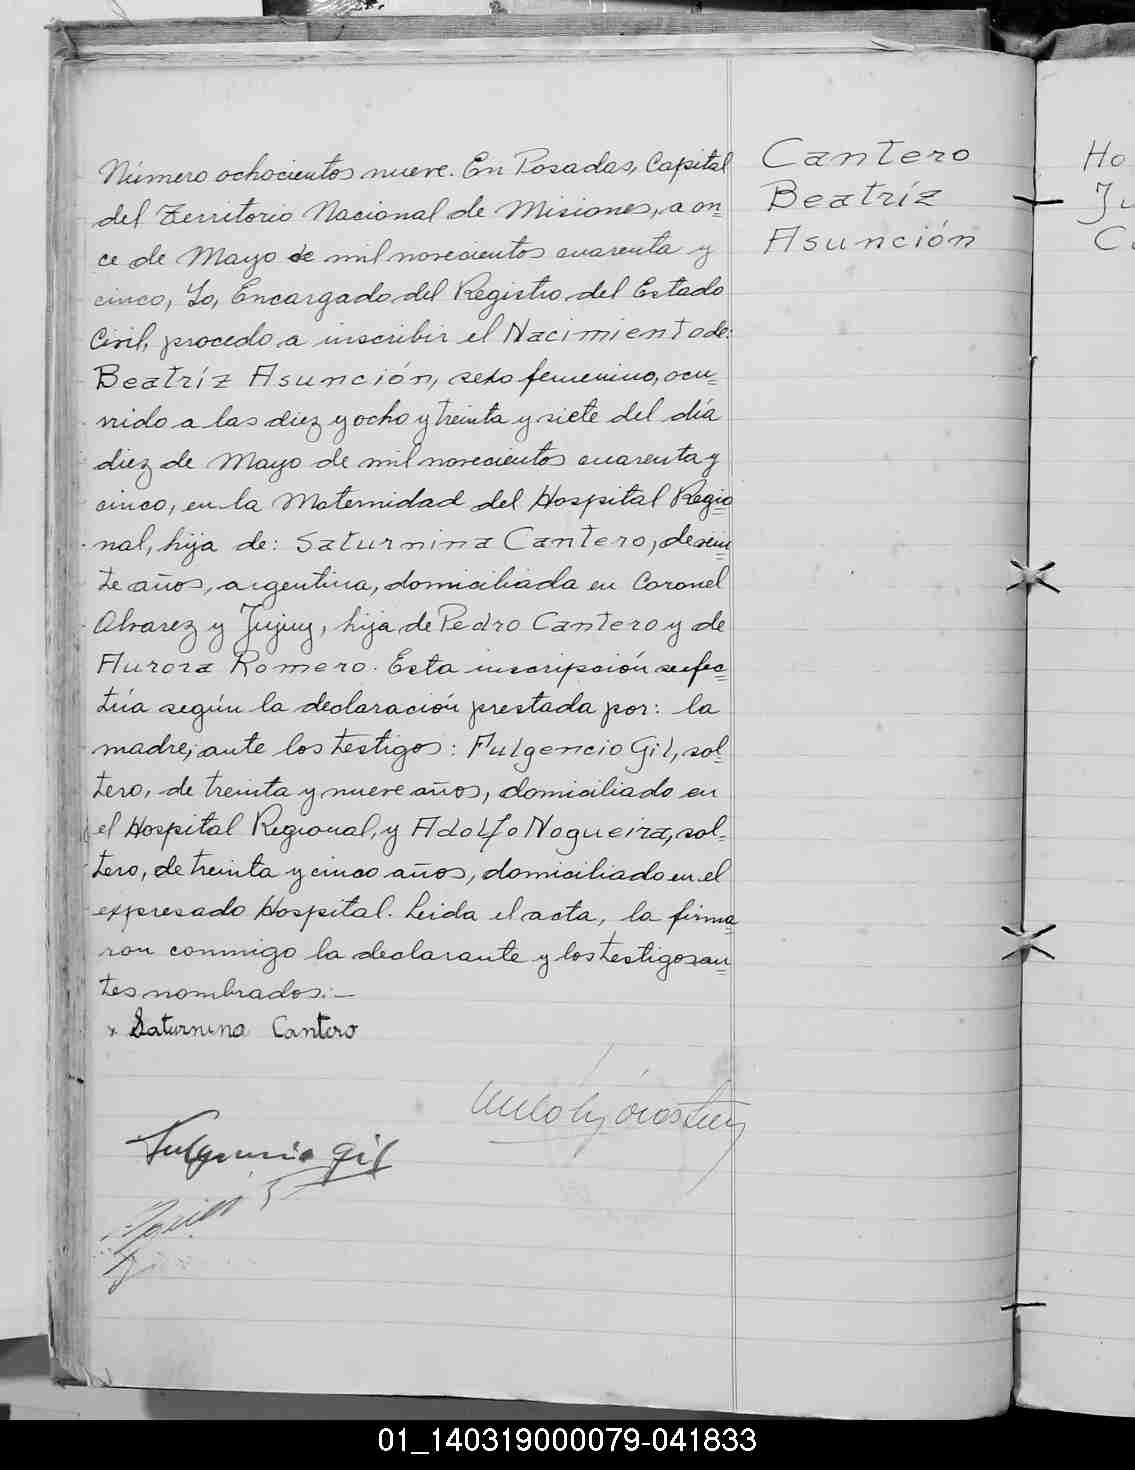 Número ochocientos nueve. En Posadas, Capital
del Territorio Nacional de Misiones, a on=
ce de Mayo de mil novecientos cuarenta y
cinco, Yo, Encargado del Registro del Estado
Civil, procedo a inscribir el Nacimiento de:
Beatríz Asunción, sexo femenino, ocu=
rrido a las diez y ocho y treinta y siete del día
diez de Mayo de mil novecientos cuarenta y
cinco, en la Maternidad del Hospital Regio=
nal, hija de: Saturnina Cantero, de vein=
te años, argentina, domiciliada en Coronel
Alvarez y Jujuy, hija de Pedro Cantero y de
Aurora Romero. Esta inscripción se efec=
túa según la declaración prestada por: la
madre, ante los testigos: Fulgencio Gil, sol=
tero, de treinta y nueve años, domiciliado en
el Hospital Regional, y Adolfo Nogueira, sol=
tero, de treinta y cinco años, domiciliado en el
expresado Hospital. Leida el acta, la firma=
ron conmigo la declarante y los testigos an=
tes nombrados.—
x Saturnina Cantero
Fulgencio Gil
Cantero
Beatríz
Asunción
Ho
Ju
Ca
01_140319000079-041833